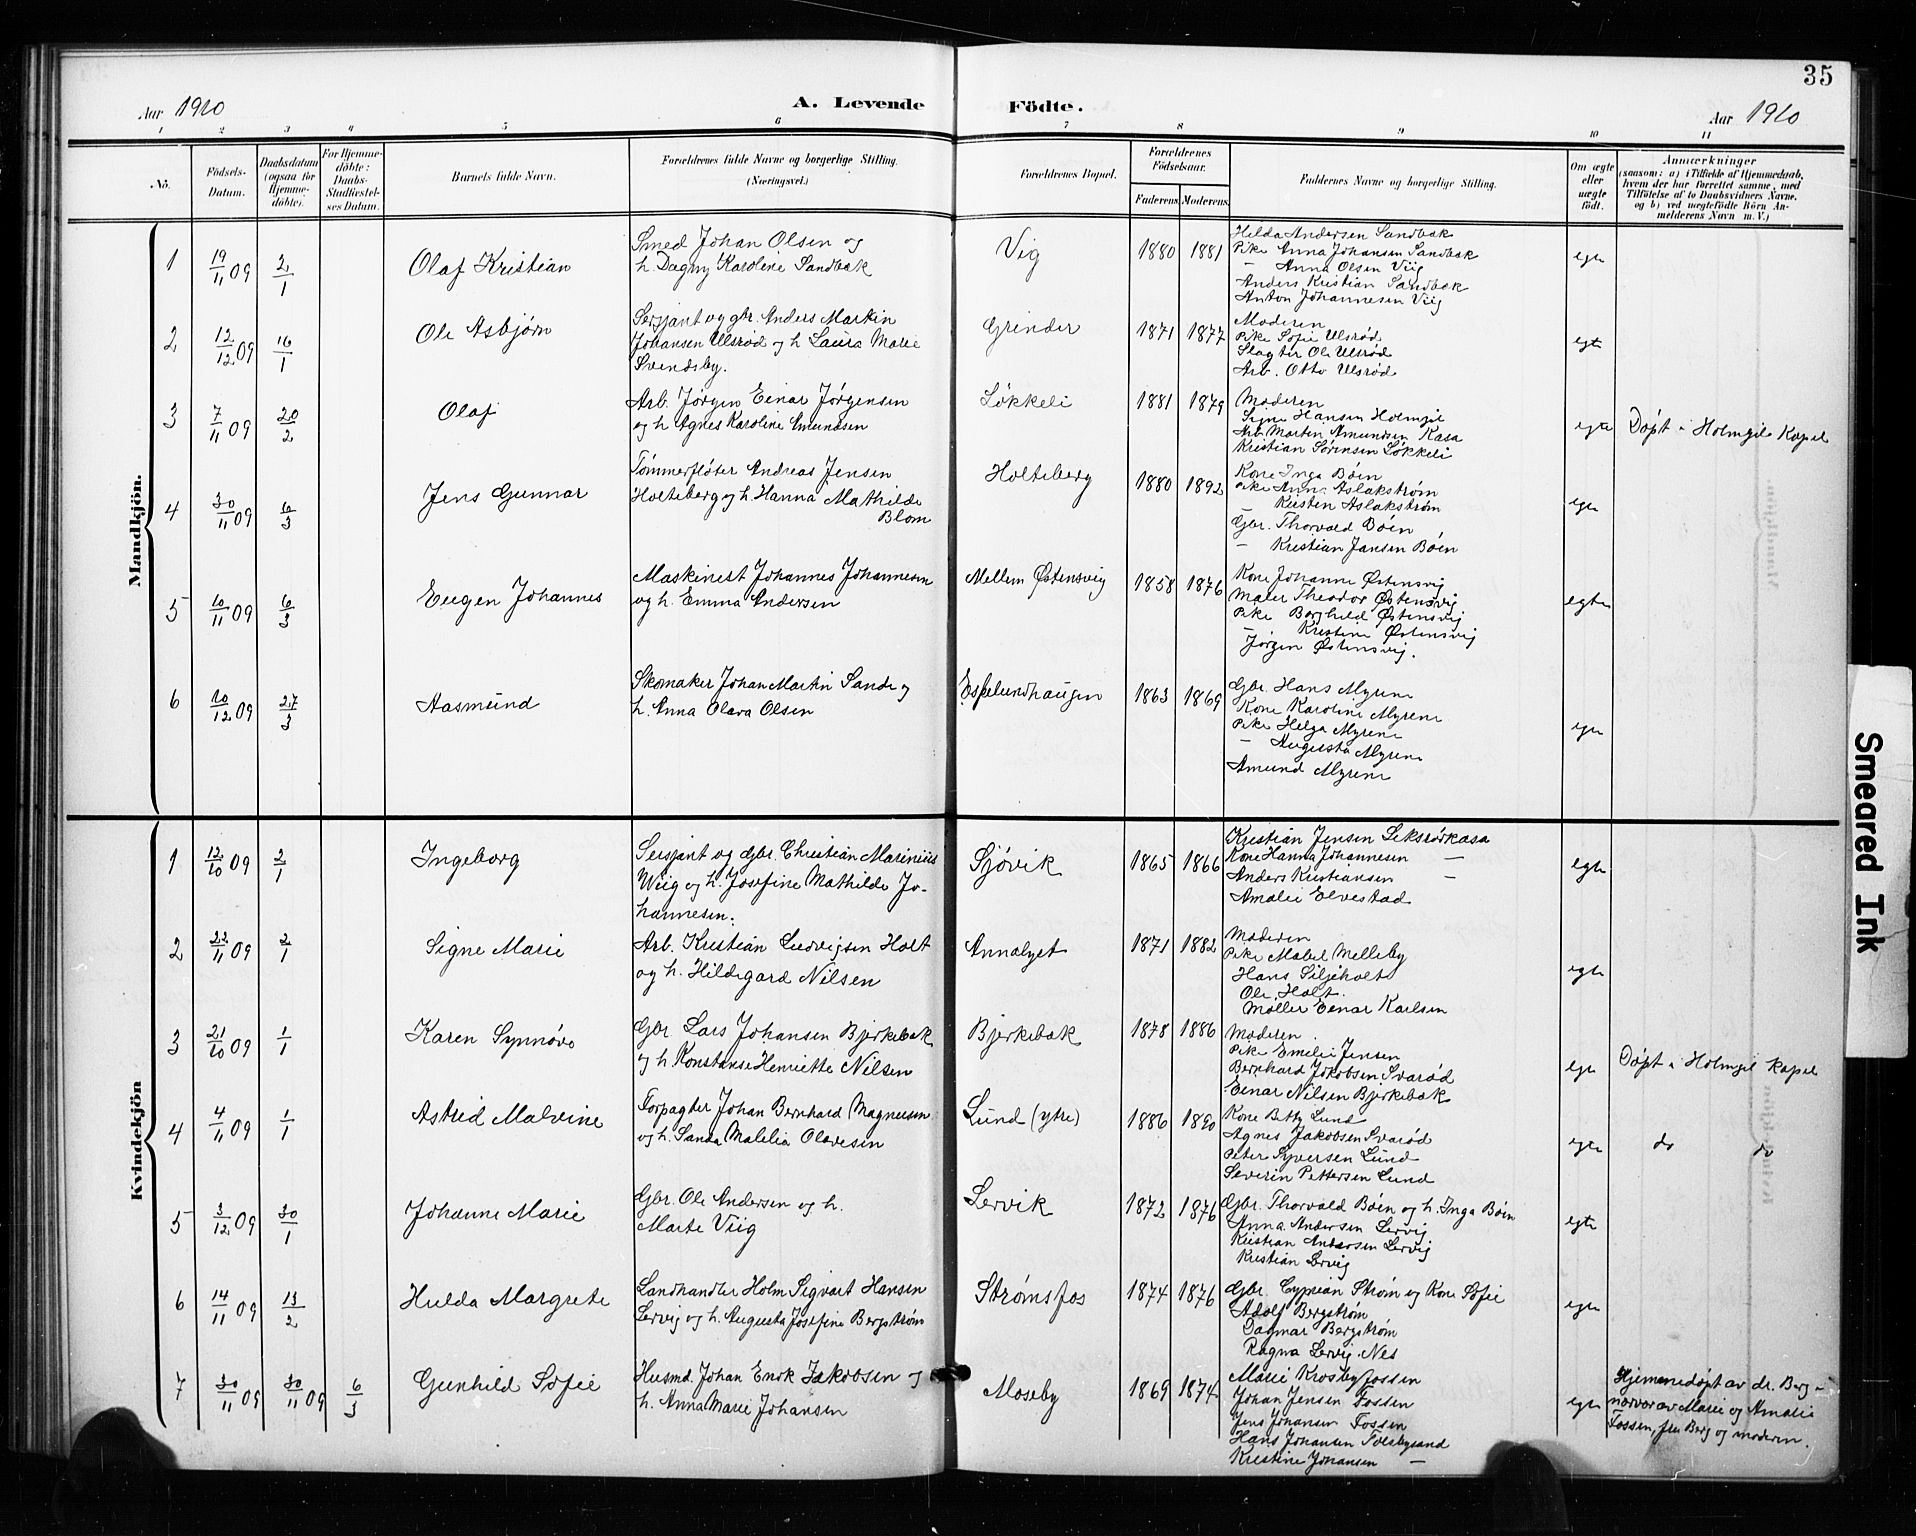 35
Aar 1910 A. Levende Födte. Aar 1910
1 2 3 4 5 6 7 8 9 10 11
No. Födsels-Datum. Daabsdatum (ogsaa for Hjemme-döbte). For Hjemme-döbte: Daabs-Stadfæstel-ses Datum. Barnets fulde Navn. Forældrenes fulde Navne og borgerlige Stilling. (Næringsvei.) Forældrenes Bopæl. Forældrenes Födselsaar. Faderens Moderens Faddernes Navne og borgerlige Stilling. Om ægte eller uægte födt. Anmærkninger
(saasom: a) i Tilfælde af Hjemmedaab,
hvem der har forrettet samme, med
Tilföielse af to Daabsvidners Navne,
og b) ved uægtefödte Börn An-
melderens Navn m. V.)
Mandkjön.
1 19/11 09 2/1 Olaf Kristian
Smed Johan Olsen og
h. Dagny Karoline Sandbæk
Vig 1880 1881
Hilda Andersen Sandbæk
Pike Anna Johansen Sandbæk
— Anna Olsen Viig
Anders Kristian Sandbæk
Anton Johannesen Viig
egte
2 12/12 09 16/1 Ole Asbjørn
Sersjant og gbr. Anders Martin
Johansen Ulsrød og h Laura Marie
Svendsby.
Grinder 1871 1877
Moderen
Pike Sofie Ulsrød
Slagter Ole Ulsrød
Arb. Otto Ulsrød
egte
3 7/11 09 20/2 Olaf
Arb. Jørgen Einar Jørgensen
og h Agnes Karoline Amundsen
Løkkeli 1881 1879
Moderen
Signe Hansen Holmgil
Arb. Martin Amundsen Kasa
Kristian Sørensen Løkkeli
egte Døpt i Holmgils Kapel
4 30/11 09 6/3 Jens Gunnar
Tømmerfløter Andreas Jensen
Holteberg og h. Hanna Mathilde
Blom
Holteberg 1880 1892
Kone Inga Bøen
Pike Anna Aslakstrøm
Kristen Aslakstrøm
Gbr. Thorvald Bøen
— Kristian Jansen Bøen
egte
5 10/11 09 6/3 Eugen Johannes
Maskinest Johannes Johannesen
og h. Emma Andersen
Mellem Østensvig 1858 1876
Kone Johanne Østensvig
Maler Theodor Østensvig
Pike Borghild Østensvig
— Kristine Østensvig
Jørgen Østensvig.
egte
6 10/12 09 27/3 Aasmund
Skomaker Johan Martin Sande og
h. Anna Olava Olsen
Espelundhaugen 1863 1869
Gbr. Hans Myrene
Kone Karoline Myrene
Pike Helga Myrene
— Augusta Myrene
Amund Myrene
egte
Kvindekjön
1 12/10 09 2/1 Ingeborg
Sersjant og Gbr. Christian Marinius
Wiig og h. Josefine Mathilde Jo-
hannesen.
Sjøvik 1865 1866
Kristian Jensen Seksrørkasa
Kone Hanna Johannesen —
Anders Kristiansen —
Amalie Elvestad
egte
2 22/11 09 2/1 Signe Marie
Arb. Kristian Ludvigsen Holt
og h. Hildegard Nilsen
Annalyet 1871 1882
Moderen
Pike Mabel Melleby
Hans Siljeholt
Ole Holt.
Møller Einar Karlsen
egte
3 21/10 09 1/1 Karen Synnøve
Gbr Lars Johansen Bjerkebæk
og h Konstanse Henriette Nilsen
Bjerkebæk 1878 1886
Moderen
Pike Emelie Jensen
Bernhard Jakobsen Svarød
Einar Nilsen Bjerkebæk
egte Døpt i Holmgil Kapel
4 4/11 09 1/1 Astrid Malvine
Forpagter Johan Bernhard Magnusen
og h. Sanda Malelia Olavesen
Lund (ytre) 1886 1890
Kone Bethy Lund
Agnes Jakobsen Svarød
Peter Syversen Lund
Severin Pettersen Lund
egte do do
5 3/12 09 30/1 Johanne Marie
Gbr. Ole Andersen og h.
Marte Viig
Lervik 1872 1876
Gbr. Thorvald Bøen og h. Inga Bøen
Anna Andersen Lervig
Kristian Andersen Lervig
Kristian Lervig
egte
6 14/11 09 13/2 Hulda Margrete
Landhandler Holm Sigvart Hansen
Lervig og h. Augusta Josefine Bergstrøm
Strømsfos 1874 1876
Gbr. Cyprian Strøm og Kone Sofie
Adolf Bergstrøm
Dagmar Bergstrøm
Ragna Lervig Nes
egte
7 30/11 09 30/11 09 6/3 Gunhild Sofie
Husmd. Johan Enok Jakobsen og
h. Anna Marie Johansen
Moseby 1869 1874
Marie Krosby Fossen
Johan Jensen Fossen
Jens Johansen Fossen
Hans Johansen Folsbysand
Kristine Johansen —
egte
Hjemmedøpt av dr. Berg –
nærvær av Marie og Amalie
Fossen, fru Berg og moderen.
Smeared Ink